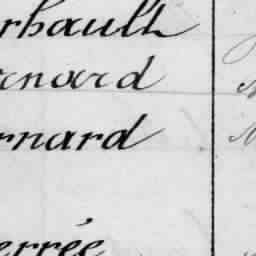 rhault
rnard
rnard
errée